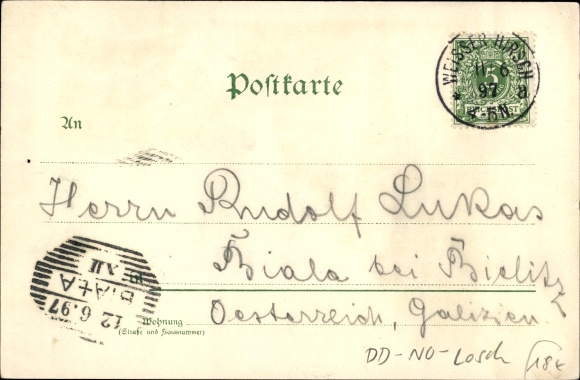 WEISSER HIRSCH
11 6
97 a
* 4-5N.
5
Postkarte
An
Herrn Rudolf Lukas
Biala bei Bielitz
Oesterreich, Galizien.
BIAŁA
12.6.97
Wohnung
(Straße und Hausnummer)
DD-NO-Losch
18€